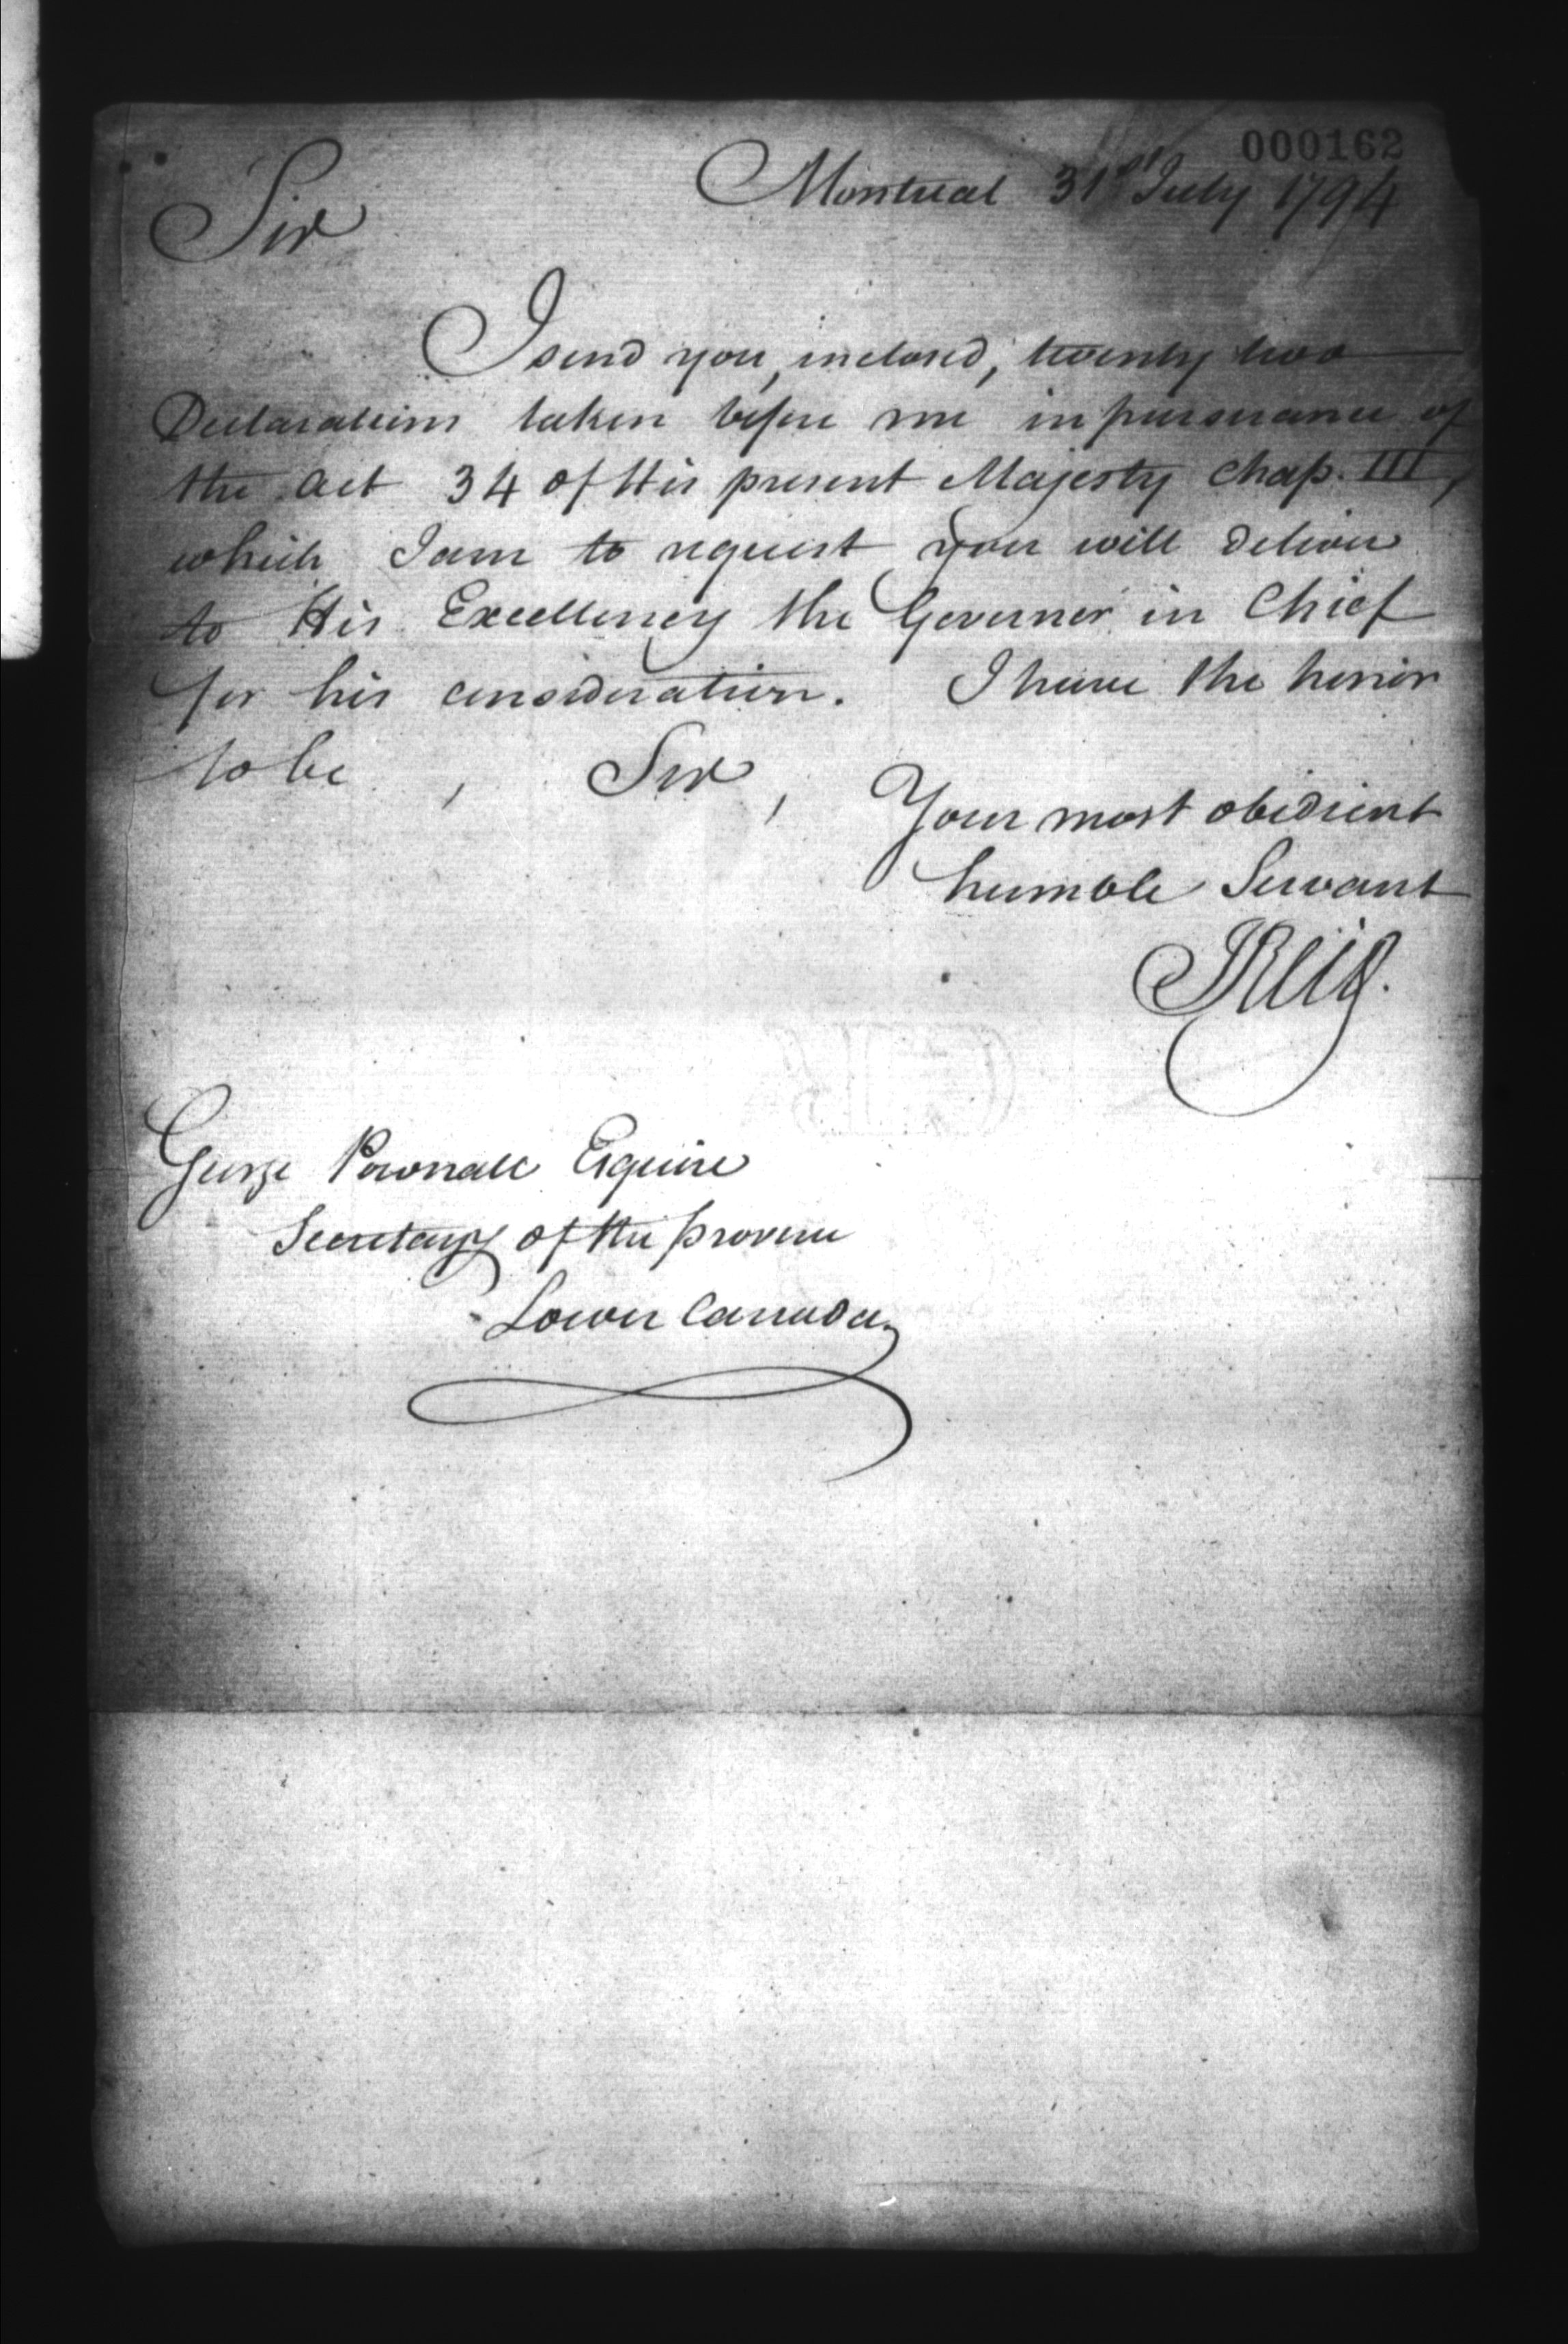 000162
Montreal 31st July 1794
Sir
I send you, inclosed, twenty two
Declarations taken before me in pursuance of
the Act 34 of His present Majesty Chap. III,
which I am to request you will deliver
to His Excellency the Governor in Chief
for his consideration. I have the honor
to be , Sir ,
Your most obedient
humble Servant
JReid.
George Pownall Esquire
Secretary of the province
Lower Canada.